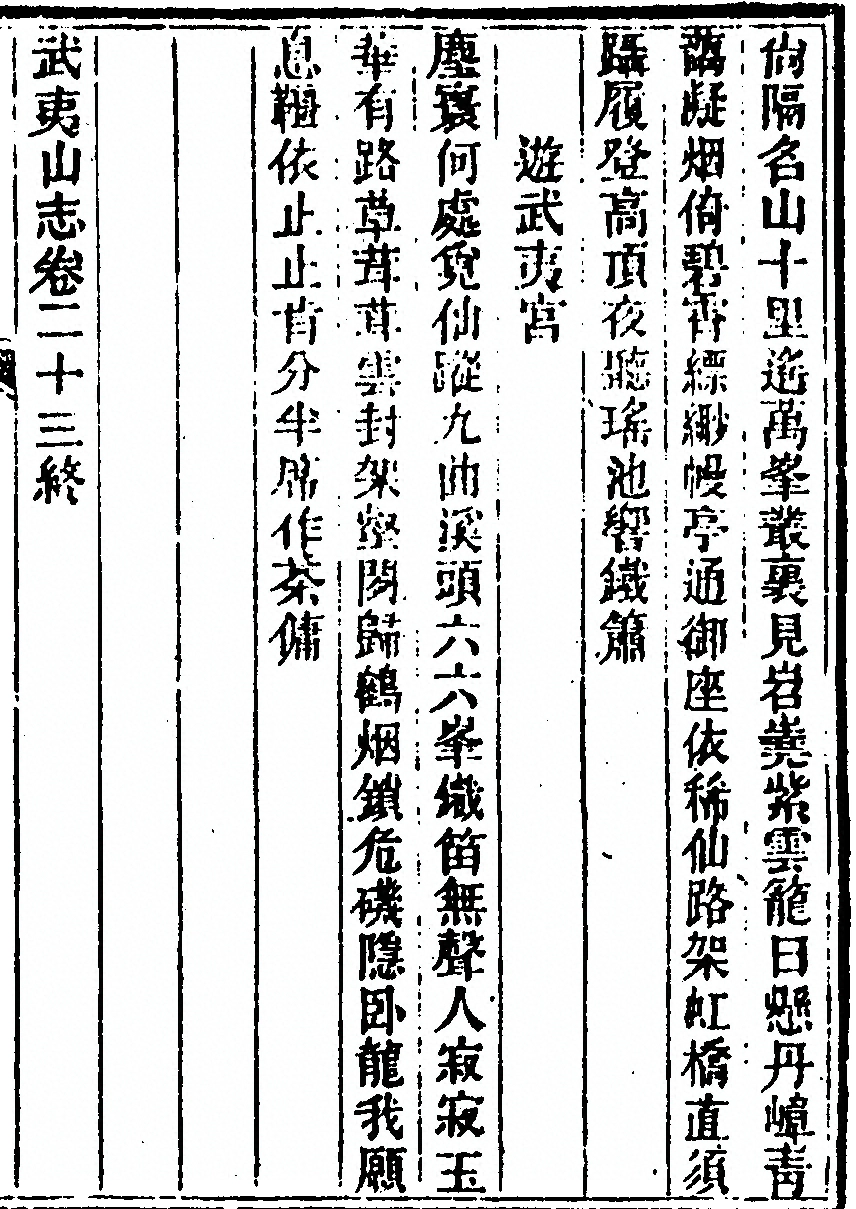 尙隔名山十里遙萬峯叢裏見岧嶤紫雲籠日懸丹嶂靑
靄凝烟倚碧霄縹緲幔亭通御座依稀仙路架虹橋直須
躡履登高頂夜聽瑤池響鐵簫
遊武夷宮
塵寰何處覓仙蹤九曲溪頭六六峯鐵笛無聲人寂寂玉
華有路草茸茸雲封架壑閑歸鶴烟鎖危磯隱卧龍我願
息 依止止肯分半席作茶傭
武夷山志卷二十三終